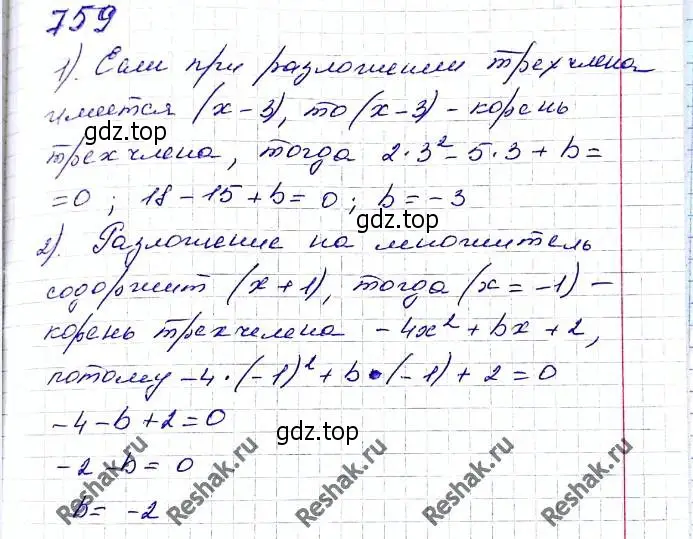 759
1). Если при разложении трехчлена
имеется (x-3), то (x-3) - корень
гдз.top
трехчлена, тогда 2·3²-5·3+b=
=0; 18-15+b=0; b=-3
гдз.top
2). Разложение на множитель
содоржит (x+1), тогда (x=-1) -
корень трехчелена -4x²+bx+2,
потому -4·(-1)²+b·(-1)+2=0
-4-b+2=0
гдз.top
-2-b=0
b= -2
Reshak.ru
Reshak.ru
Reshak.ru
Reshak.ru
Reshak.ru